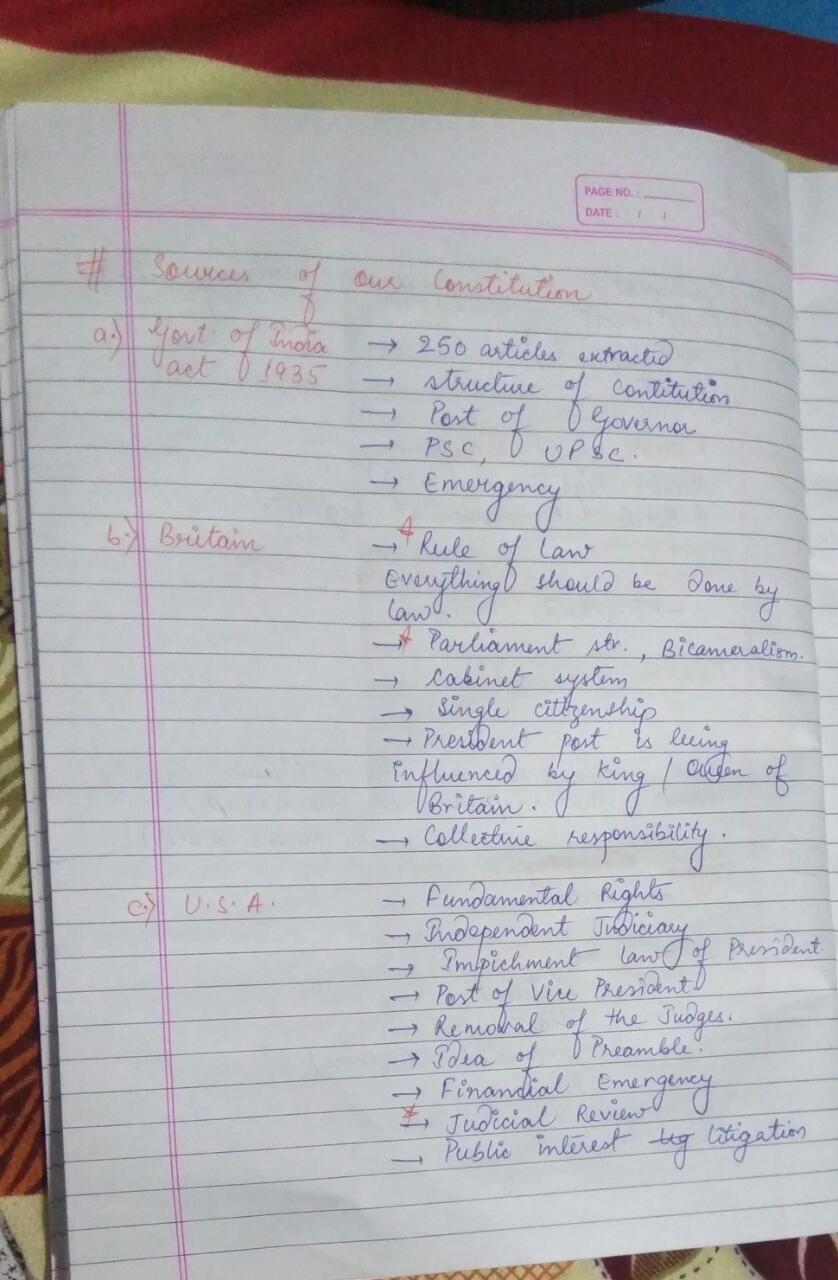 PAGE NO. :
DATE : / /
# Sources of our Constitution
a.) Govt. of India → 250 articles extracted
act of 1935 → structure of Contitution
→ Post of Governor
→ PSC, UPSC.
→ Emergency
b.) Britain → Rule of Law
Everything should be done by
law.
→ Parliament str., Bicameralism.
→ Cabinet system
→ Single citizenship
→ President post is being
influenced by King / Queen of
Britain.
→ Collective responsibility.
c.) U.S.A. → Fundamental Rights
→ Independent Judiciary
→ Impichment law of President
→ Post of Vice President
→ Removal of the Judges.
→ Idea of Preamble.
→ Financial Emergency
→ Judicial Review
→ Public interest litigation